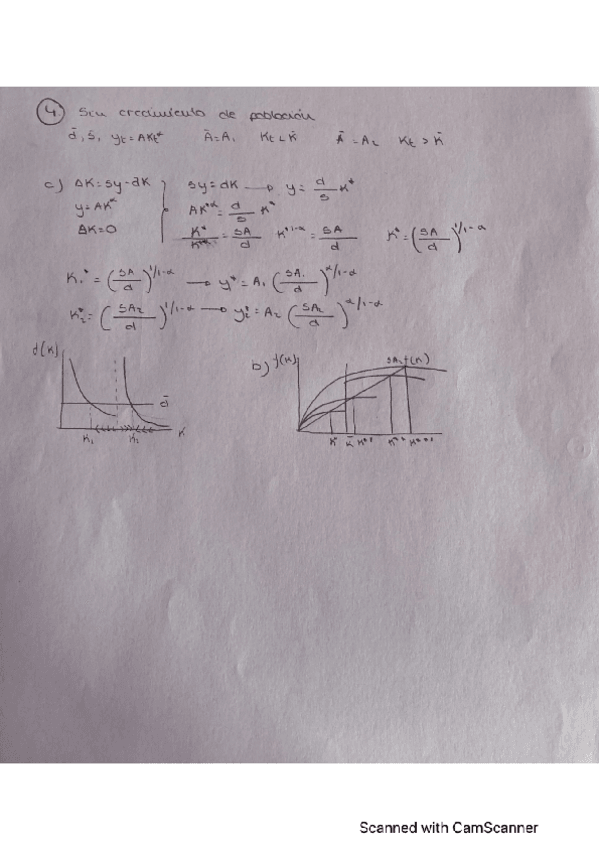 4. Sin crecimiento de población
d̄, s, yt = AKt^α Ā = A1 Kt < K̄ Ā = A2 Kt > K̄
c) ΔK = sy - dK sy = dK → y = d/s K*
y = AK^α AK*^α = d/s K*
ΔK = 0 K*/K*^α = SA/d K*^1-α = SA/d K* = (SA/d)^1/1-α
K1* = (SA1/d)^1/1-α → y* = A1 (SA1/d)^α/1-α
K2* = (SA2/d)^1/1-α → y2* = A2 (SA2/d)^α/1-α
f(K) b) f(K) SA2f(K)
d̄
K1 K2 K K* K̄
Scanned with CamScanner